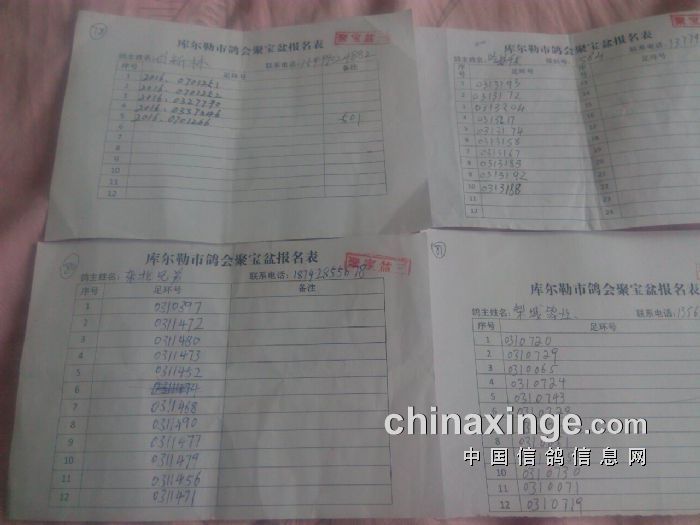 78
库尔勒市鸽会聚宝盆报名表
聚宝盆二
鸽主姓名：
联系电话：
序号 足环号 备注
1 2016.0701261
2 2016.0701262
3 2016.0327790
4 2016.
5 2016.0701266 501
6
7
8
9
10
11
12
库尔勒市鸽会聚宝盆报名表
鸽主姓名：
序号 足环号
1 0313195
2 0313172
3 0313204
4 0313217
5 0313174
6 0313158
7 0313167
8 0313183
9 0313192
10 0313188
11
12
库尔勒市鸽会聚宝盆报名表
聚宝盆二
鸽主姓名：东北兄弟
联系电话：
序号 足环号 备注
1 0310397
2 0311472
3 0311480
4 0311473
5 0311452
6
7 0311468
8 0311490
9 0311477
10 0311479
11 0311456
12 0311471
81
库尔勒市鸽会聚宝盆报名表
鸽主姓名：梨城鸽社
联系电话：
序号 足环号
1 0310720
2 0310729
3 0310065
4 0310724
5 0310743
10 0310730
11 0310071
12 0310719
chinaxinge.com
中国信鸽信息网